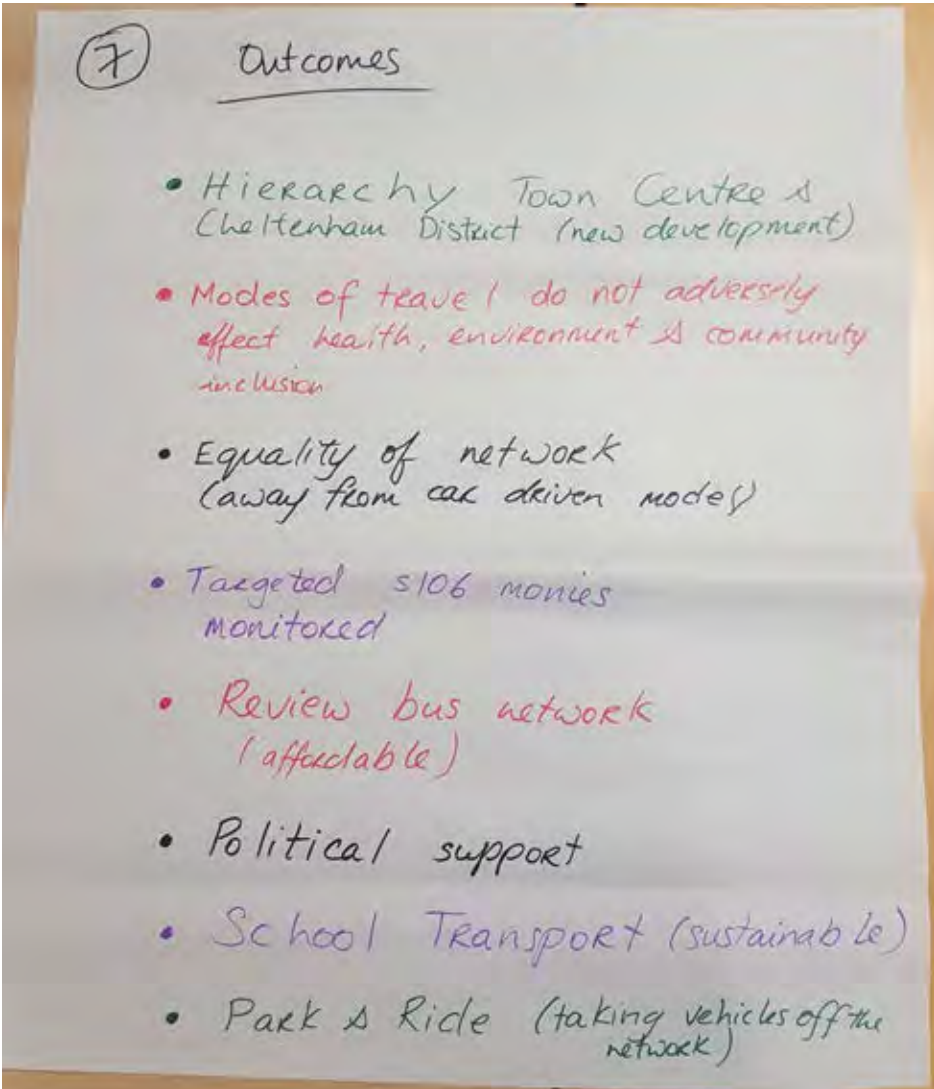 7 Outcomes
• Hierarchy Town Centre &
Cheltenham District (new development)
• Modes of travel do not adversely
effect health, environment & community
inclusion
• Equality of network
(away from car driven modes)
• Targeted S106 monies
monitored
• Review bus network
(affordable)
• Political support
• School Transport (sustainable)
• Park & Ride (taking vehicles off the
network)